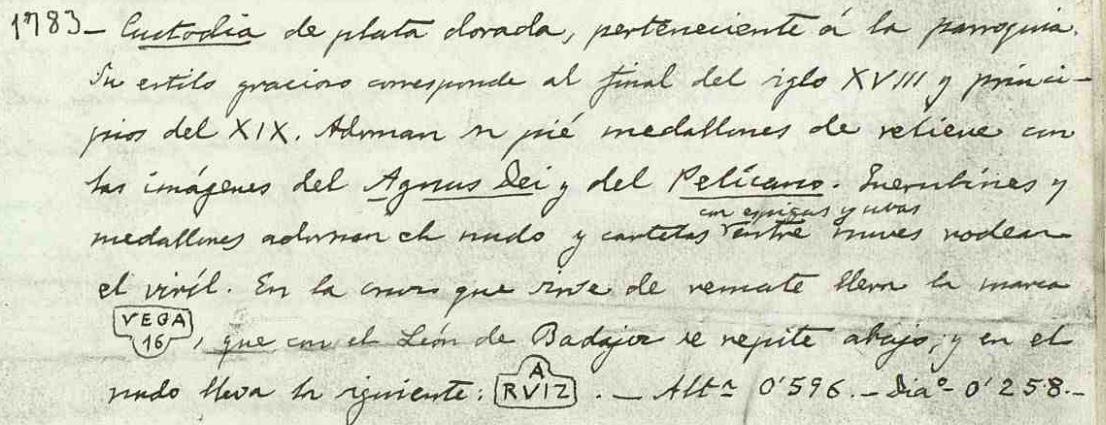 1783 - Custodia de plata dorada, perteneciente á la parroquia.
Su estilo gracioso corresponde al final del siglo XVIII y princi-
pios del XIX. Adornan su pié medallones de relieve con
las imágenes del Agnus Dei y del Pelícano. Querubines y
con espigas y uvas
medallones adornan el nudo y cartelas entre nuves rodean
el viríl. En la cruz que sirve de remate lleva la marca
VEGA
16, que con el León de Badajoz se repite abajo, y en el
nudo lleva la siguiente: A
RVIZ. - Altª 0'596. - Diaº 0'258.-